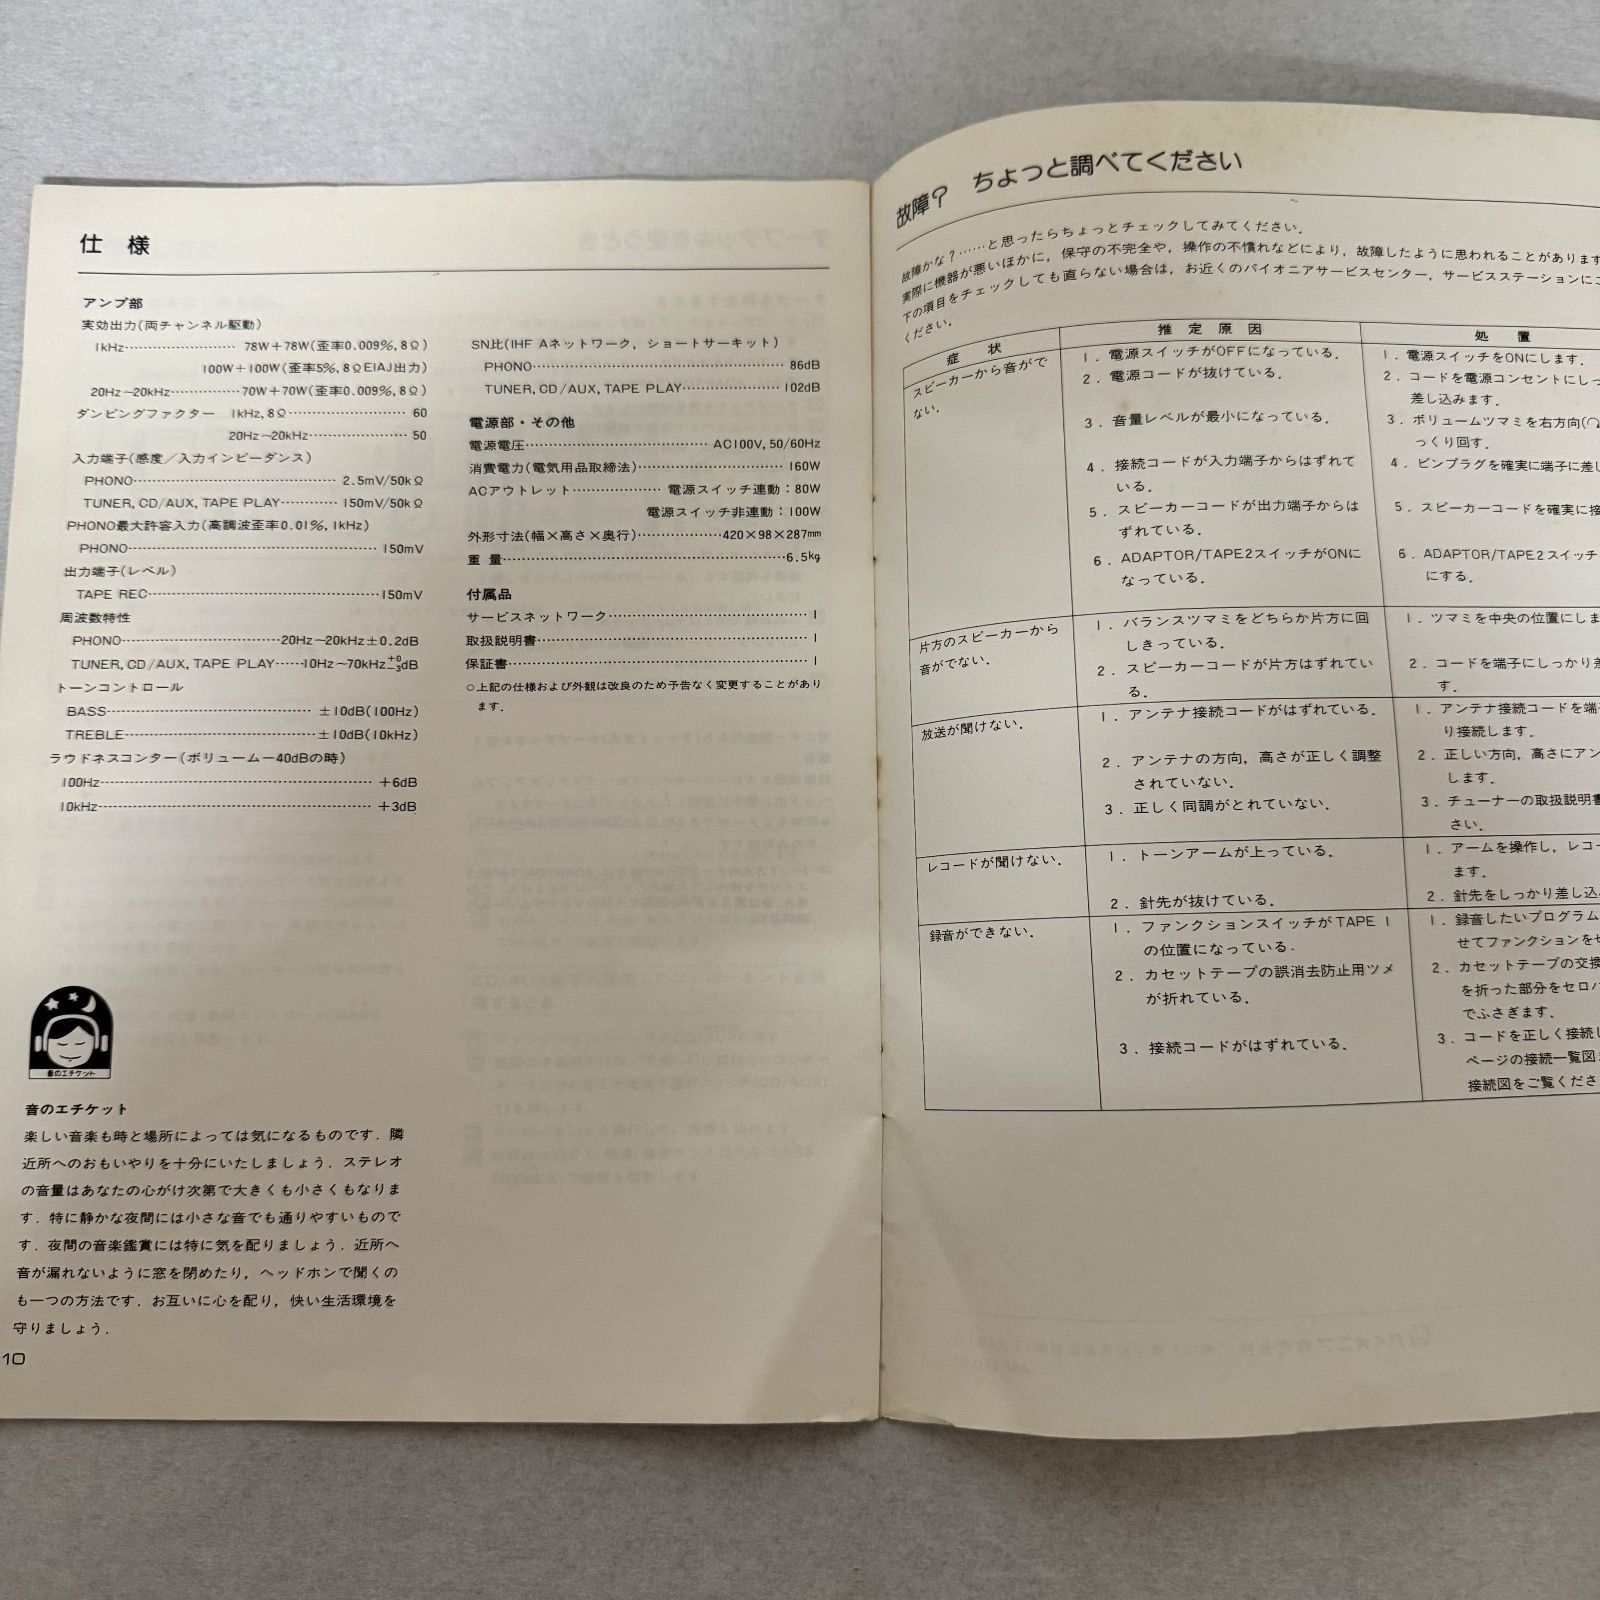 仕 様
アンプ部
実効出力(両チャンネル駆動)
1kHz…………………… 78W+78W(歪率0.009%, 8Ω)
100W+100W(歪率5%, 8ΩEIAJ出力)
20Hz~20kHz…………70W+70W(歪率0.009%, 8Ω)
ダンピングファクター 1kHz, 8Ω…………………… 60
20Hz~20kHz……………… 50
入力端子(感度/入力インピーダンス)
PHONO……………………………… 2.5mV/50kΩ
TUNER, CD/AUX, TAPE PLAY………… 150mV/50kΩ
PHONO最大許容入力(高調波歪率0.01%, 1kHz)
PHONO……………………………………… 150mV
出力端子(レベル)
TAPE REC……………………………………150mV
周波数特性
PHONO…………………………20Hz~20kHz±0.2dB
TUNER, CD/AUX, TAPE PLAY……10Hz~70kHz+0 -3dB
トーンコントロール
BASS………………………………… ±10dB(100Hz)
TREBLE……………………………… ±10dB(10kHz)
ラウドネスコンター(ボリューム-40dBの時)
100Hz…………………………………………… +6dB
10kHz…………………………………………… +3dB
音のエチケット
音のエチケット
楽しい音楽も時と場所によっては気になるものです. 隣
近所へのおもいやりを十分にいたしましょう. ステレオ
の音量はあなたの心がけ次第で大きくも小さくもなりま
す. 特に静かな夜間には小さな音でも通りやすいもので
す. 夜間の音楽鑑賞には特に気を配りましょう. 近所へ
音が漏れないように窓を閉めたり, ヘッドホンで聞くの
も一つの方法です. お互いに心を配り, 快い生活環境を
守りましょう.
10
SN比(IHF Aネットワーク, ショートサーキット)
PHONO……………………………………… 86dB
TUNER, CD/AUX, TAPE PLAY………………… 102dB
電源部・その他
電源電圧……………………………… AC100V, 50/60Hz
消費電力(電気用品取締法)………………………… 160W
ACアウトレット……………… 電源スイッチ連動:80W
電源スイッチ非連動:100W
外形寸法(幅×高さ×奥行)……………420×98×287mm
重 量……………………………………………………6.5kg
付属品
サービスネットワーク…………………………………… 1
取扱説明書………………………………………………… 1
保証書……………………………………………………… 1
○上記の仕様および外観は改良のため予告なく変更することがあり
ます.
故障? ちょっと調べてください
故障かな?……と思ったらちょっとチェックしてみてください.
実際に機器が悪いほかに, 保守の不完全や, 操作の不慣れなどにより, 故障したように思われることがあります
下の項目をチェックしても直らない場合は, お近くのパイオニアサービスセンター, サービスステーションにご
ください.
症 状
推 定 原 因
処 置
スピーカーから音がで
ない.
1. 電源スイッチがOFFになっている.
2. 電源コードが抜けている.
3. 音量レベルが最小になっている.
4. 接続コードが入力端子からはずれて
いる.
5. スピーカーコードが出力端子からは
ずれている.
6. ADAPTOR/TAPE2スイッチがONに
なっている.
1. 電源スイッチをONにします.
2. コードを電源コンセントにしっ
差し込みます.
3. ボリュームツマミを右方向(
っくり回す.
4. ピンプラグを確実に端子に差し
5. スピーカーコードを確実に接
6. ADAPTOR/TAPE2スイッチ
にする.
片方のスピーカーから
音がでない.
1. バランスツマミをどちらか片方に回
しきっている.
2. スピーカーコードが片方はずれてい
る.
1. ツマミを中央の位置にしま
2. コードを端子にしっかり差
す.
放送が聞けない.
1. アンテナ接続コードがはずれている.
2. アンテナの方向, 高さが正しく調整
されていない.
3. 正しく同調がとれていない.
1. アンテナ接続コードを端
り接続します.
2. 正しい方向, 高さにアン
します.
3. チューナーの取扱説明書
さい.
レコードが聞けない.
1. トーンアームが上っている.
2. 針先が抜けている.
1. アームを操作し, レコー
ます.
2. 針先をしっかり差し込
録音ができない.
1. ファンクションスイッチがTAPE 1
の位置になっている.
2. カセットテープの誤消去防止用ツメ
が折れている.
3. 接続コードがはずれている.
1. 録音したいプログラム
せてファンクションをセ
2. カセットテープの交換
を折った部分をセロハ
でふさぎます.
3. コードを正しく接続し
ページの接続一覧図
接続図をご覧くださ